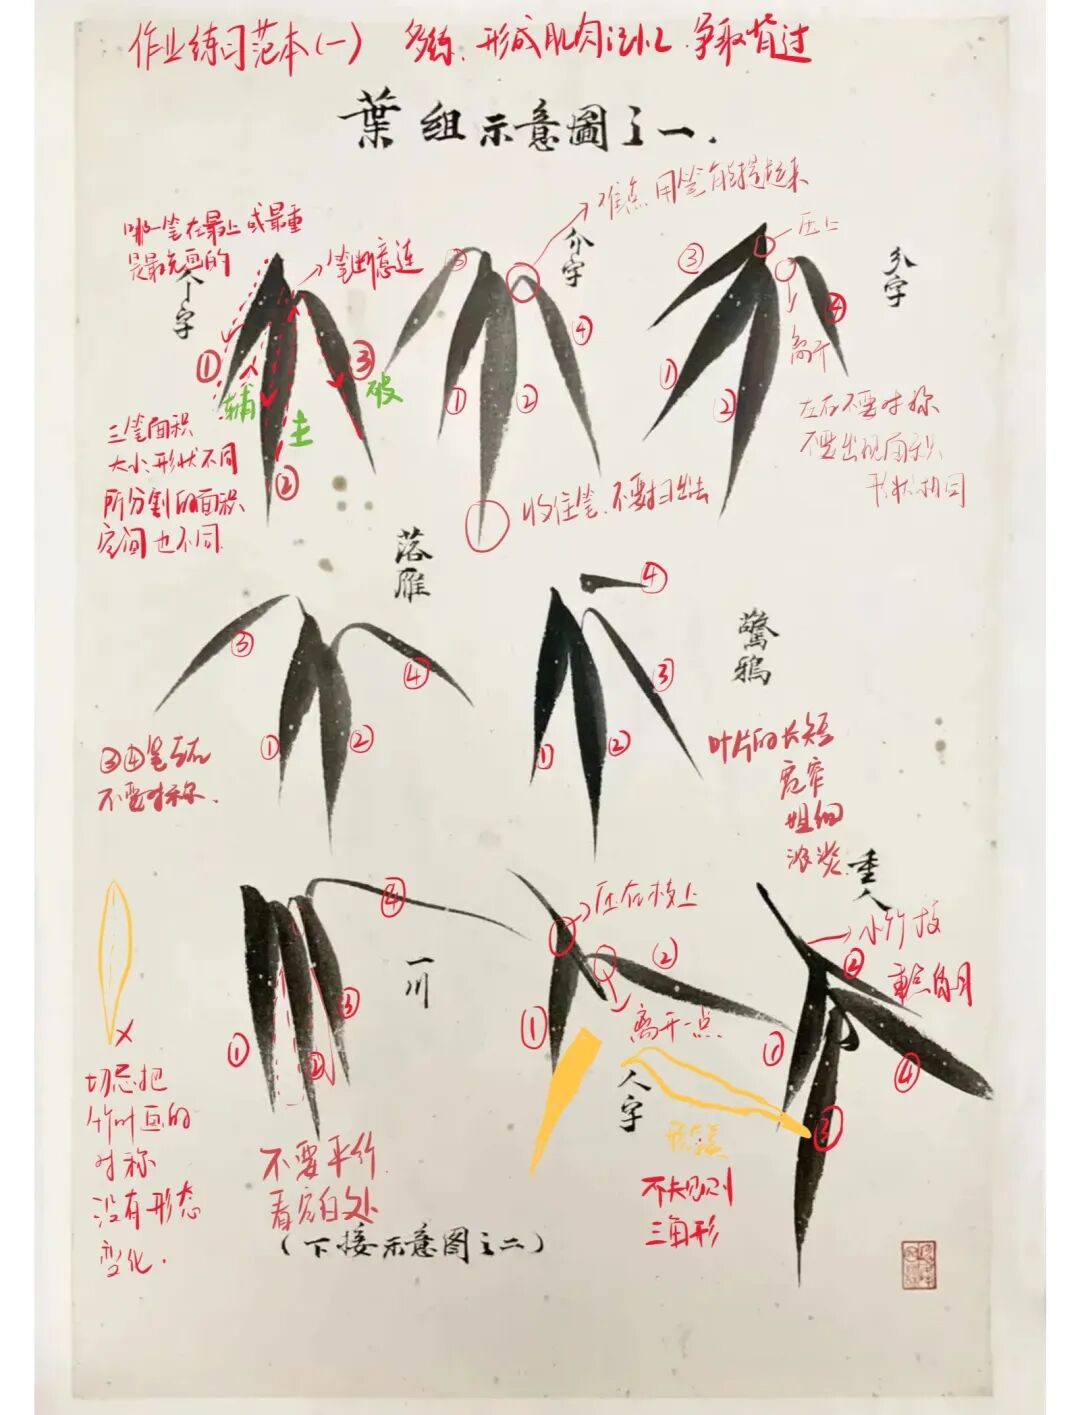 作业练习范本(一) 多练、形成肌肉记忆、争取背过
葉组示意圖之一.
哪一笔在最上或最重
是最先画的
个字
→笔断意连
难点 用笔能提起来
介字
压上
分字
离开
① 辅
② 主
③ 破
③
①
②
④
③
①
②
④
三笔面积
大小、形状不同
所分割的面积
空间也不同.
收住笔、不要扫出去
左右不要对称
不要出现面积、
形状相同
落雁
③
④
①
②
③④笔左右
不要对称.
④
③
①
②
驚鸦
叶片的长短
宽窄
粗细
浓淡
④
③
①
②
一川
压在枝上
②
①
离开一点
人字
重人
→小竹枝
②
重点自月
①
④
③
×
切忌把
竹叶画的
对称
没有形态
变化.
不要平行.
看空白处
不规则
三角形
(下接示意图之二)